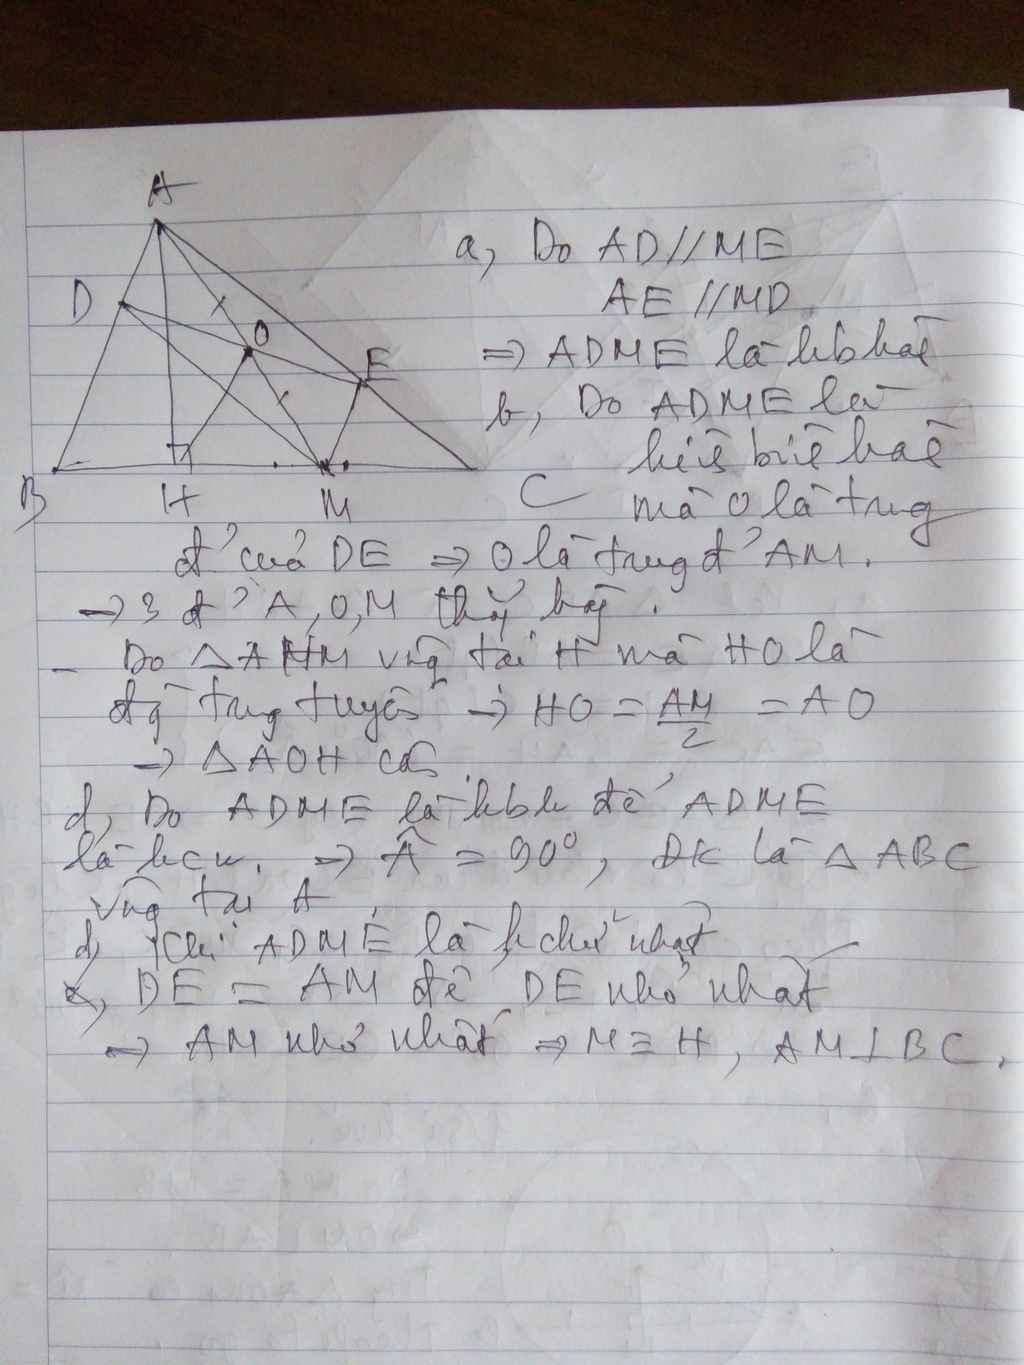 A
D
O
E
B
H
M
C
a, Do AD//ME
AE//MD
=> ADME là hb hàh
b, Do ADME là
hàh
mà O là trug
đ' của DE => O là trug đ' AM.
-> 3 đ' A, O, M thẳg hàg.
- Do △AHM vuôg tại H mà HO là
đg trug tuyến -> HO = AM/2 = AO
-> △AOH cân
d, Do ADME là hbh để ADME
là hcn. => Â = 90°, ĐK là △ABC
vuôg tại A
d) Khi ADME là h chữ nhật
DE = AM để DE nhỏ nhất
=> AM nhỏ nhất => M ≡ H, AM⊥BC.